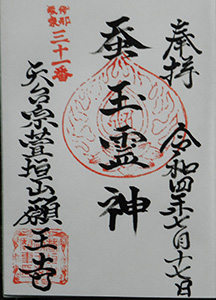 奉拝
令和四年七月十七日
蚕玉霊神
伊那
諏訪
三十一番
天台宗萱垣山願王寺